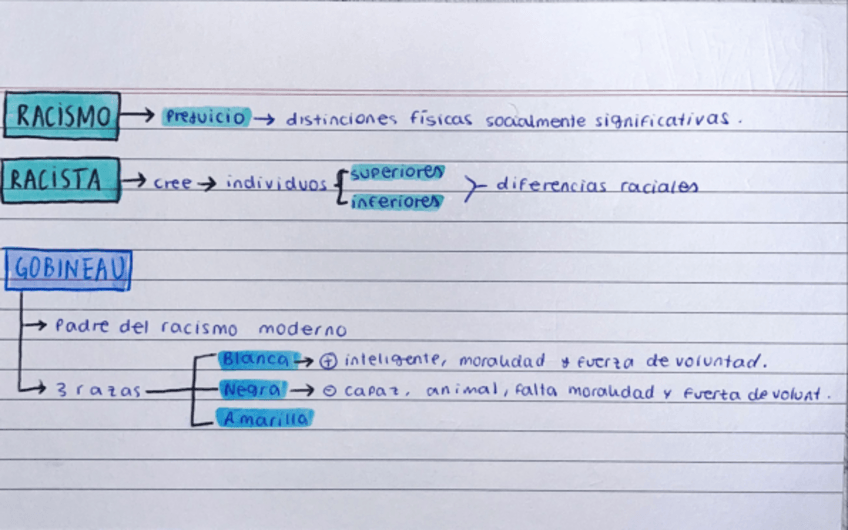 RACISMO → Prejuicio → distinciones físicas socialmente significativas.
RACISTA → cree → individuos { superiores
inferiores } diferencias raciales
GOBINEAU
→ Padre del racismo moderno
→ 3 razas
Blanca → ⊕ inteligente, moralidad y fuerza de voluntad.
Negra → ⊖ capaz, animal, falta moralidad y fuerta de volunt.
Amarilla